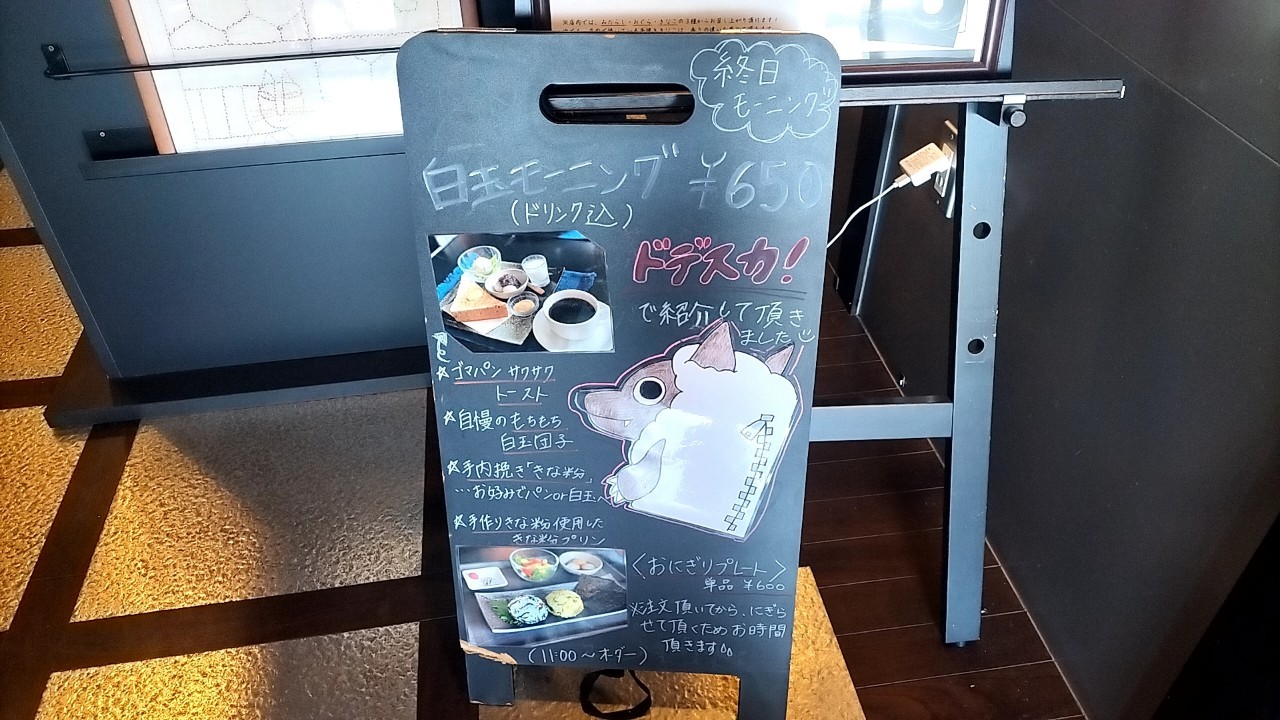 終日
モーニング
白玉モーニング ¥650
(ドリンク込)
ドデスカ!
で紹介して頂き
ました
☆ゴマパン サクサク
トースト
☆自慢のもちもち
白玉団子
☆手内挽き「きな粉」
…お好みでパンor白玉へ
☆手作りきな粉使用した
きな粉プリン
〈おにぎりプレート〉
単品 ¥600
※注文頂いてから、にぎら
せて頂くためお時間
頂きます
(11:00〜オーダー)